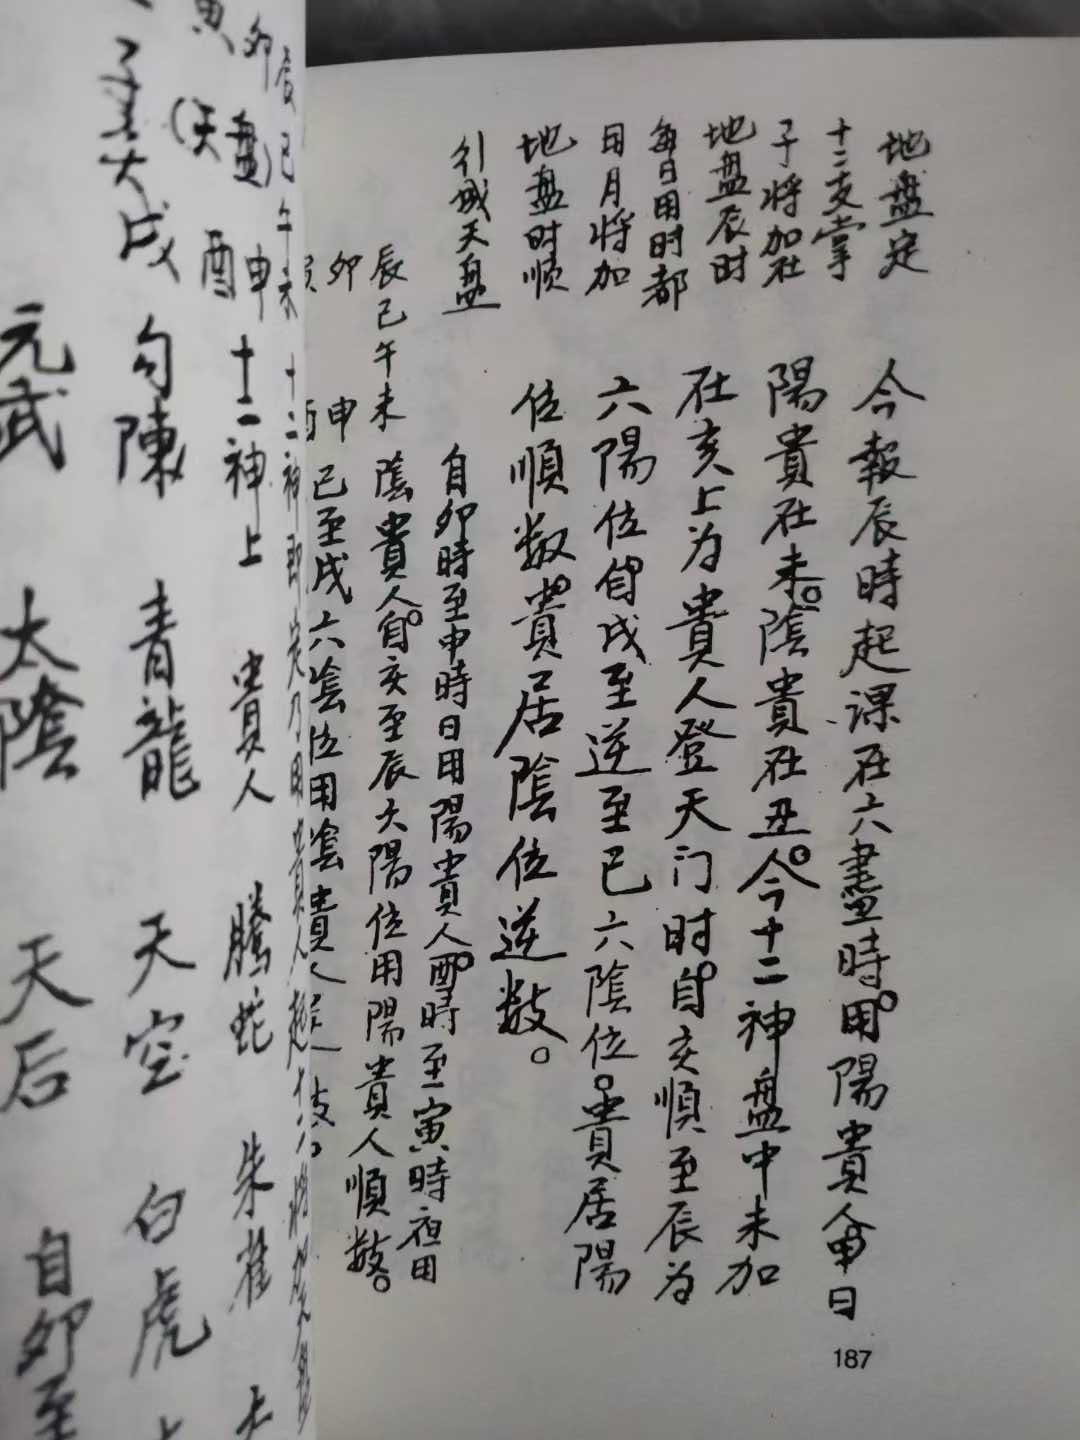 地盘定
十二支掌
子将加在
地盘辰时
每日用时都
用月将加
地盘时顺
引成天盘
今報辰時起課在六畫時。用陽貴人。申日
陽貴在未。陰貴在丑。今十二神盘中未加
在亥上为貴人登天门时。自亥順至辰为
六陽位。自戌至逆至巳六陰位。貴居陽
位順数。貴居陰位逆数。
自卯時至申時日用陽貴人。酉時至寅時夜用
陰貴人。自亥至辰六陽位用陽貴人順数。
巳至戌六陰位用陰貴人
辰巳午未
卯
申
酉
卯辰巳午未
寅
(天盘)
酉申
十二神上 貴人 騰蛇 朱雀
戌 勾陳 青龍 天空 白虎
元武 太陰 天后 自卯至
187